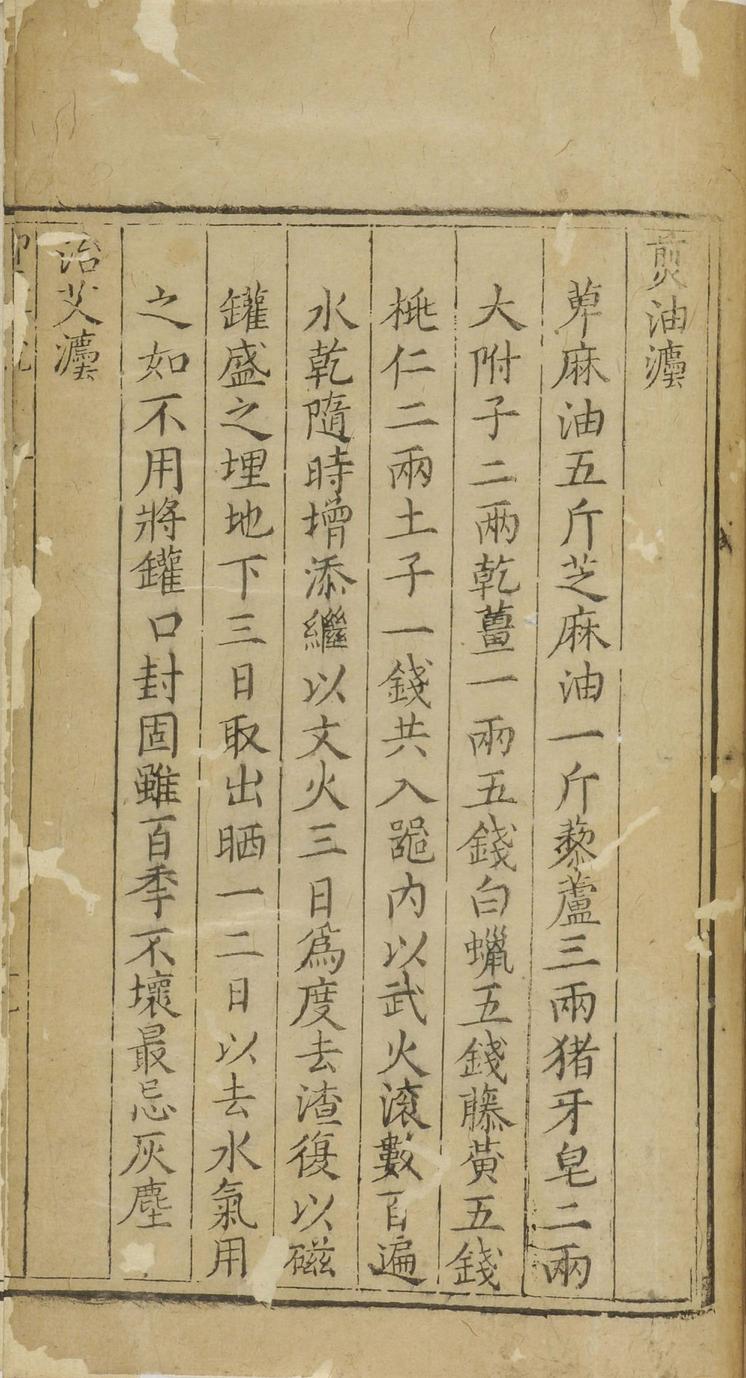 煎油灋
萆麻油五斤芝麻油一斤藜蘆三兩猪牙皂二兩
大附子二兩乾薑一兩五錢白蠟五錢藤黃五錢
桃仁二兩土子一錢共入𨰉內以武火滾數百遍
水乾隨時增添繼以文火三日爲度去渣復以磁
罐盛之埋地下三日取出晒一二日以去水氣用
之如不用將罐口封固雖百季不壞最忌灰塵
治艾灋